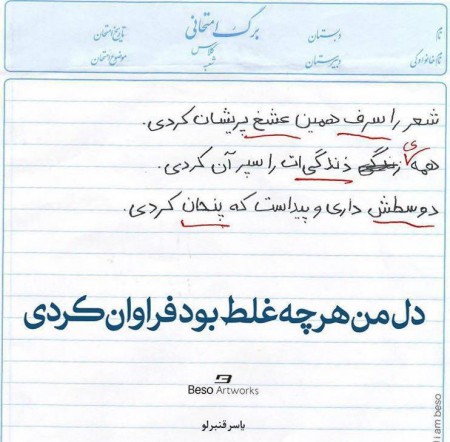 برگ امتحانی
نام
دبستان
تاریخ امتحان
نام خانوادگی
دبیرستان
کلاس
شعبه
موضوع امتحان
شعر را سرف همین عشغ پریشان کردی.
همه ی ذندگی‌ات را سپر آن کردی.
دوسطش داری و پیداست که پنحان کردی.
دل من هرچه غلط بود فراوان کردی
Beso Artworks
یاسر قنبرلو
I am beso